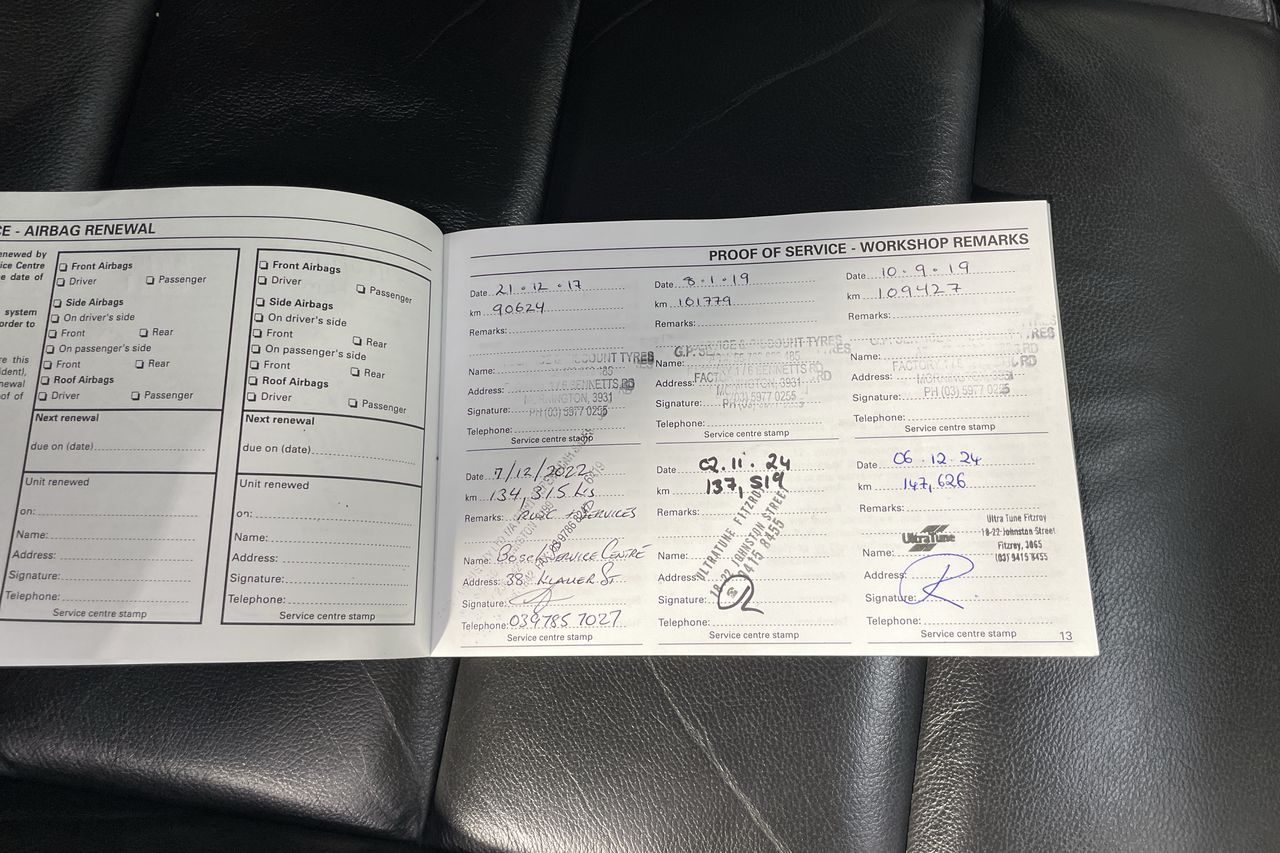 CE - AIRBAG RENEWAL
enewed by
ice Centre
e date of
system
order to
re this
ident),
newal
of of
Front Airbags
Driver Passenger
Side Airbags
On driver's side
Front Rear
On passenger's side
Front Rear
Roof Airbags
Driver Passenger
Next renewal
due on (date)
Unit renewed
on:
Name:
Address:
Signature:
Telephone:
Service centre stamp
Front Airbags
Driver Passenger
Side Airbags
On driver's side
Front Rear
On passenger's side
Front Rear
Roof Airbags
Driver Passenger
Next renewal
due on (date)
Unit renewed
on:
Name:
Address:
Signature:
Telephone:
Service centre stamp
PROOF OF SERVICE - WORKSHOP REMARKS
Date 21.12.17
km 90624
Remarks:
COUNT TYRES
Name:
1/6 BENNETTS RD
Address:
MORNINGTON, 3931
Signature:
PH (03) 5977 0255
Telephone:
Service centre stamp
Date 8.1.19
km 101779
Remarks:
G.P. SERVICE & DISCOUNT TYRES
Name:
Address: FACTORY 1/6 BENNETTS RD
MORNINGTON, 3931
Signature: PH (03) 5977 0255
Telephone:
Service centre stamp
Date 10.9.19
km 109427
Remarks:
G.P. SERVICE & DISCOUNT TYRES
Name:
FACTORY 1/6 BENNETTS RD
Address:
MORNINGTON, 3931
Signature: PH (03) 5977 0255
Telephone:
Service centre stamp
Date 7/12/2022
km 134,315 Ks
Remarks: SERVICES
Name: Bosch Service Centre
Address: 38 St.
Signature:
Telephone: 039785 7027
Service centre stamp
Date 02.11.24
km 137,519
Remarks:
ULTRATUNE FITZROY
18-22 JOHNSTON STREET
9415 8455
Name:
Address:
Signature:
Telephone:
Service centre stamp
Date 06.12.24
km 147,626
Remarks:
UltraTune
Ultra Tune Fitzroy
18-22 Johnston Street
Fitzroy, 3065
(03) 9415 8455
Name:
Address:
Signature:
Telephone:
Service centre stamp
13